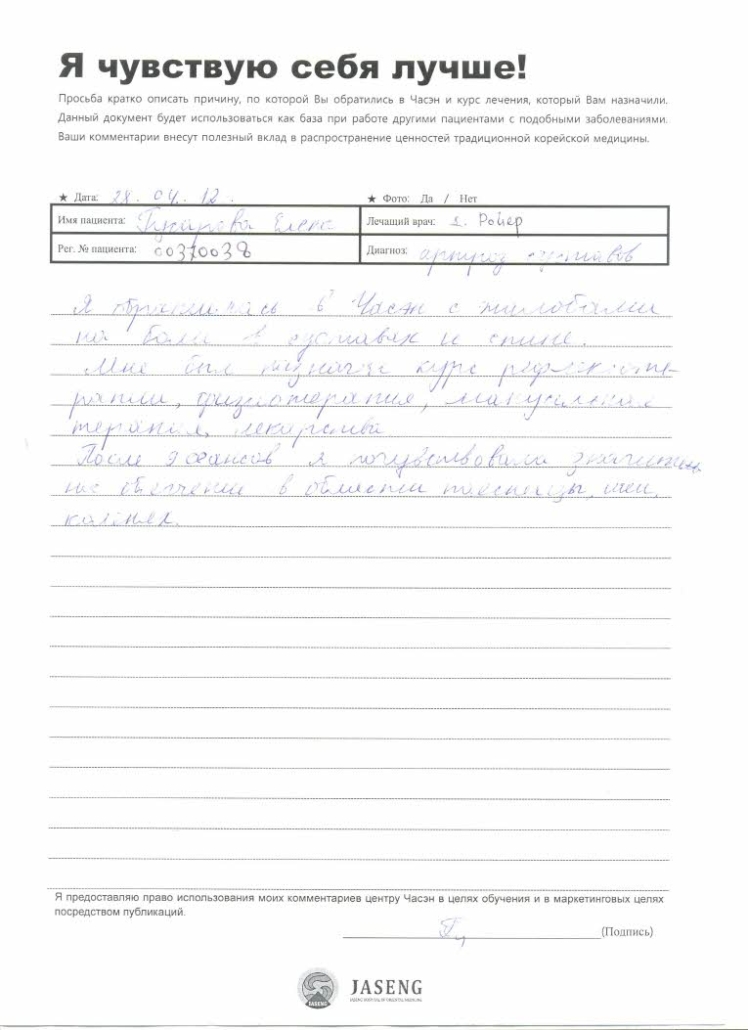 Я чувствую себя лучше!
Просьба кратко описать причину, по которой Вы обратились в Часэн и курс лечения, который Вам назначили.
Данный документ будет использоваться как база при работе другими пациентами с подобными заболеваниями.
Ваши комментарии внесут полезный вклад в распространение ценностей традиционной корейской медицины.
★ Дата: 28. 04. 12. ★ Фото: Да / Нет
Имя пациента: Елена Лечащий врач: Д. Ройер
Рег. № пациента: 00370038 Диагноз: артроз суставов
Я обратилась в Часэн с жалобами
на боли в суставах и спине.
Мне был назначен курс рефлексоте-
рапии, физиотерапия, мануальная
терапия, лекарства
После 9 сеансов я почувствовала значитель
ное облегчение в области поясницы, шеи,
коленях.
Я предоставляю право использования моих комментариев центру Часэн в целях обучения и в маркетинговых целях
посредством публикаций.
(Подпись)
JASENG
JASENG